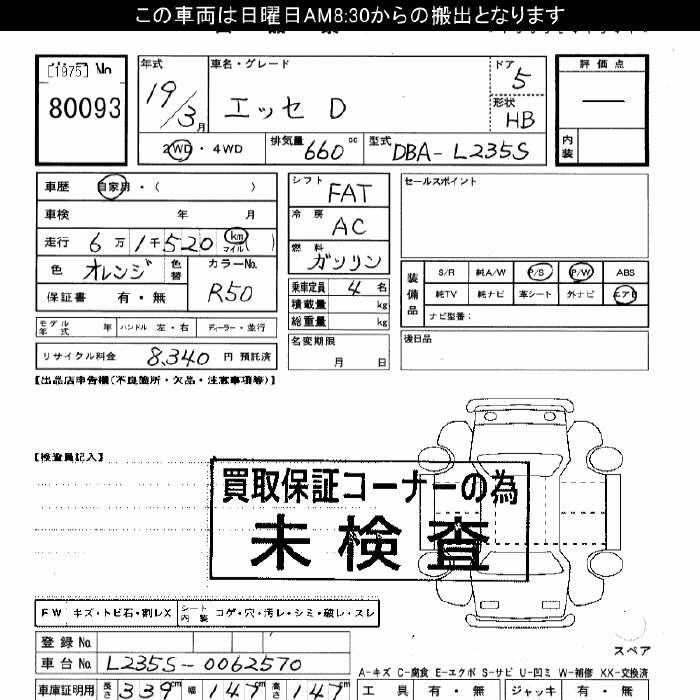 この車両は日曜日AM8:30からの搬出となります
[1975] No
80093
年式 車名・グレード ドア 評価点
19/3月 エッセ D 5
形状 HB
2WD・4WD 排気量 660cc 型式 DBA-L235S 内装
車歴 自家用・( )
車検 年 月
走行 6万1千520 km マイル( )
色 オレンジ 色替 カラーNo. R50
保証書 有・無
シフト FAT
冷房 AC
燃料 ガソリン
乗車定員 4名
積載量 kg
総重量 kg
名変期限 月 日
セールスポイント
装備品 S/R 純A/W P/S P/W ABS
純TV 純ナビ 革シート 外ナビ エアB
ナビ型番:
後日品
モデル年式 年 ハンドル 左・右 ディーラー・並行
リサイクル料金 8,340 円 預託済
【出品店申告欄(不良箇所・欠品・注意事項等)】
【検査員記入】
買取保証コーナーの為
未検査
FW キズ・トビ石・割レX シート内装 コゲ・穴・汚レ・シミ・破レ・スレ
スペア
登録No.
車台No. L235S-0062570
A-キズ C-腐食 E-エクボ S-サビ U-凹ミ W-補修 XX-交換済
車庫証明用 長さ 339cm 幅 147cm 高さ 147cm
工具 有・無 ジャッキ 有・無